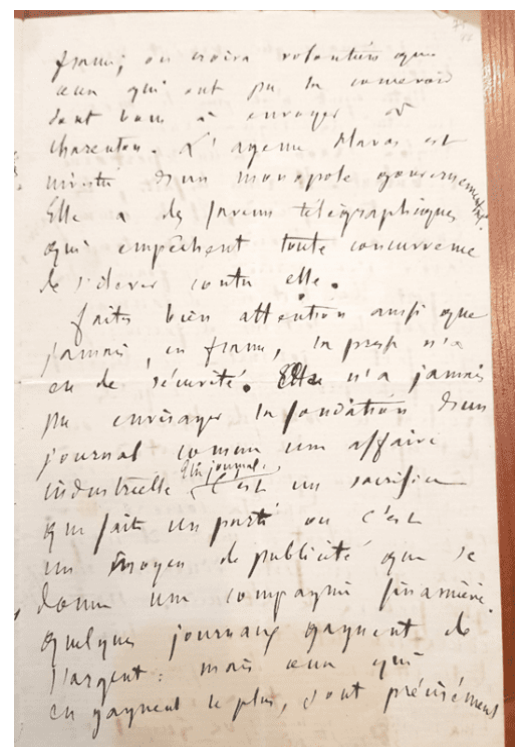 france, on croira volontiers que
ceux qui ont pu la concevoir
sont bons à envoyer à
Charenton. L'agence Havas est
investie d'un monopole gouvernemental.
Elle a des faveurs télégraphiques
qui empêchent toute concurrence
de s'élever contre elle.
faites bien attention aussi que
jamais, en france, la presse n'a
eu de sécurité. Elle n'a jamais
pu envisager la fondation d'un
journal comme une affaire
industrielle. Un journal, c'est un sacrifice
que fait un parti ou c'est
un moyen de publicité que se
donne une compagnie financière.
quelques journaux gagnent de
l'argent : mais ceux qui
en gagnent le plus, sont précisément